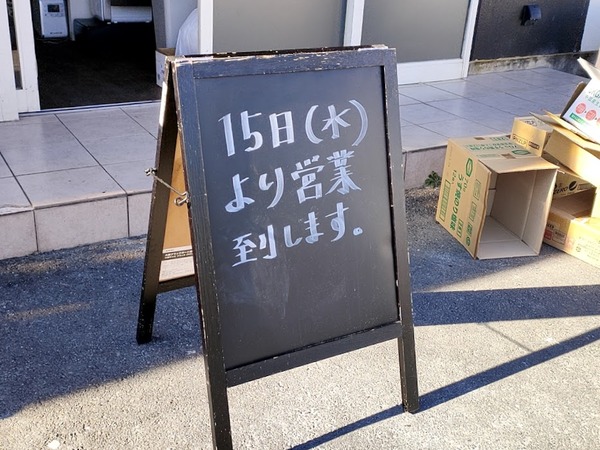 15日(水)
より営業
到します。